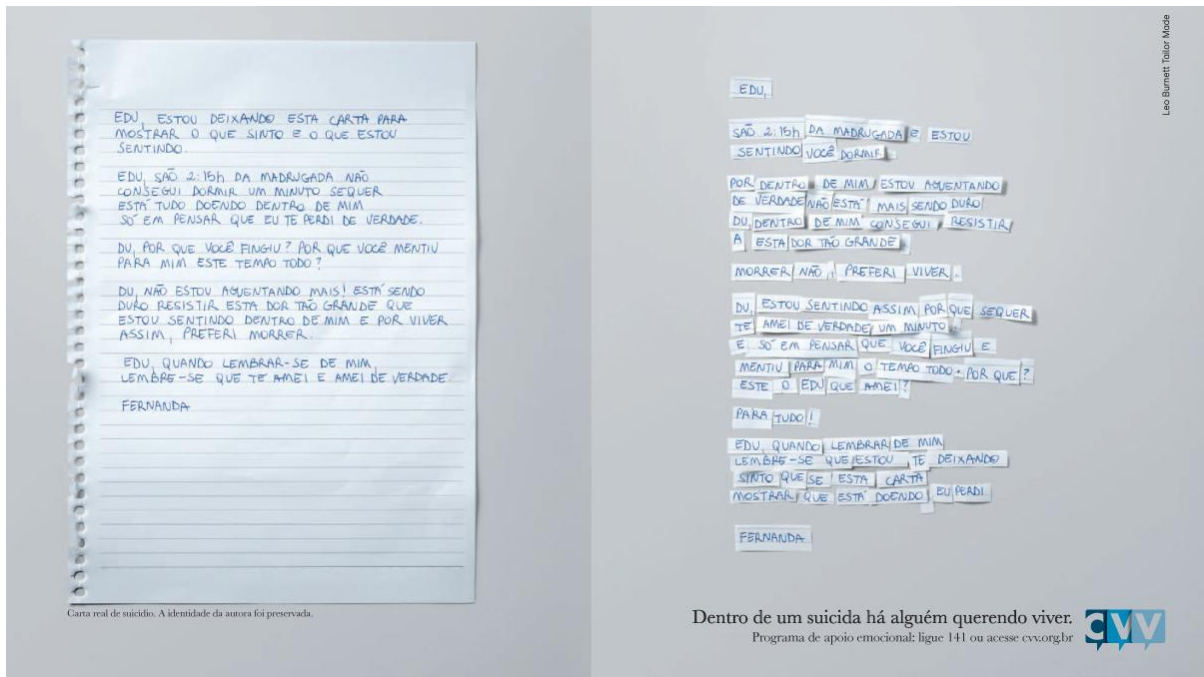 EDU, ESTOU DEIXANDO ESTA CARTA PARA
MOSTRAR O QUE SINTO E O QUE ESTOU
SENTINDO.
EDU, SÃO 2:15h DA MADRUGADA NÃO
CONSEGUI DORMIR UM MINUTO SEQUER
ESTÁ TUDO DOENDO DENTRO DE MIM
SÓ EM PENSAR QUE EU TE PERDI DE VERDADE.
DU, POR QUE VOCÊ FINGIU? POR QUE VOCÊ MENTIU
PARA MIM ESTE TEMPO TODO?
DU, NÃO ESTOU AGUENTANDO MAIS! ESTÁ SENDO
DURO RESISTIR ESTA DOR TÃO GRANDE QUE
ESTOU SENTINDO DENTRO DE MIM E POR VIVER
ASSIM, PREFERI MORRER.
EDU, QUANDO LEMBRAR-SE DE MIM,
LEMBRE-SE QUE TE AMEI E AMEI DE VERDADE.
FERNANDA
Carta real de suicídio. A identidade da autora foi preservada.
Leo Burnett Tailor Made
EDU,
SÃO 2:15h DA MADRUGADA E ESTOU
SENTINDO VOCÊ DORMIR.
POR DENTRO DE MIM, ESTOU AGUENTANDO
DE VERDADE NÃO ESTÁ MAIS SENDO DURO
DU, DENTRO DE MIM CONSEGUI RESISTIR
A ESTA DOR TÃO GRANDE.
MORRER NÃO, PREFERI VIVER.
DU, ESTOU SENTINDO ASSIM POR QUE SEQUER
TE AMEI DE VERDADE, UM MINUTO.
E SÓ EM PENSAR QUE VOCÊ FINGIU E
MENTIU PARA MIM O TEMPO TODO. POR QUE?
ESTE O EDU QUE AMEI?
PARA TUDO!
EDU, QUANDO LEMBRAR DE MIM
LEMBRE-SE QUE ESTOU TE DEIXANDO
SINTO QUE SE ESTA CARTA
MOSTRAR QUE ESTÁ DOENDO, EU PERDI
FERNANDA
Dentro de um suicida há alguém querendo viver.
Programa de apoio emocional: ligue 141 ou acesse cvv.org.br
CVV